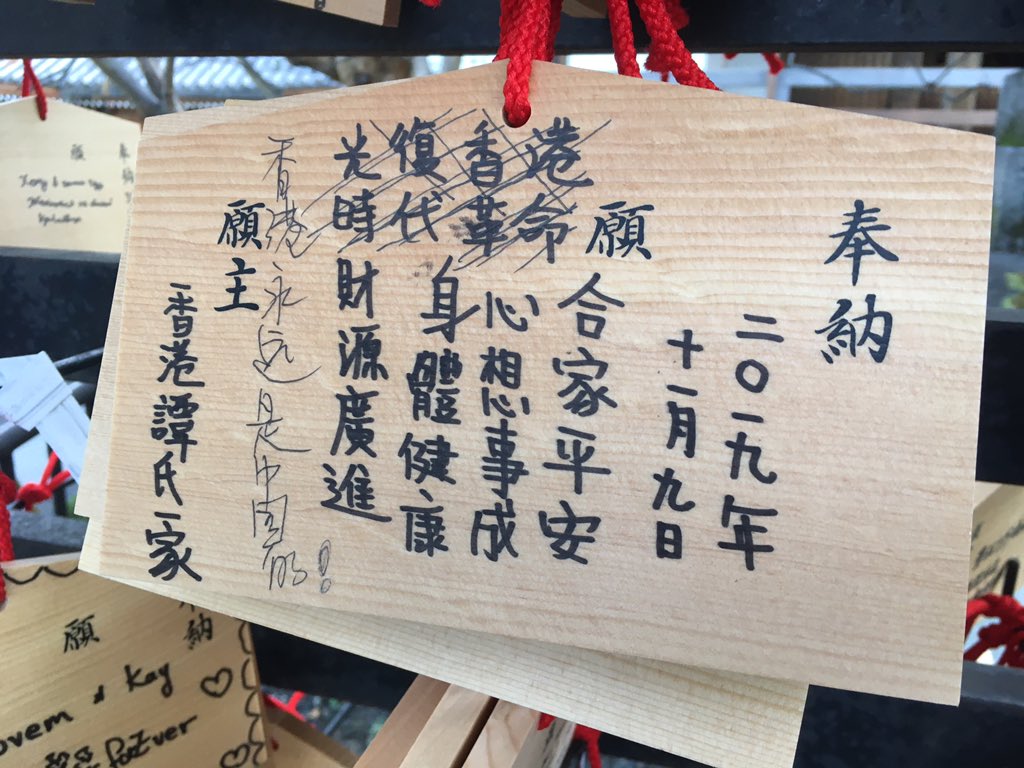 奉納
二〇一九年
十一月九日
願
光復香港
時代革命
合家平安
心想事成
身體健康
財源廣進
香港永远是中国的!
願主
香港譚氏一家
奉納
願
納
願
ovem & Kay